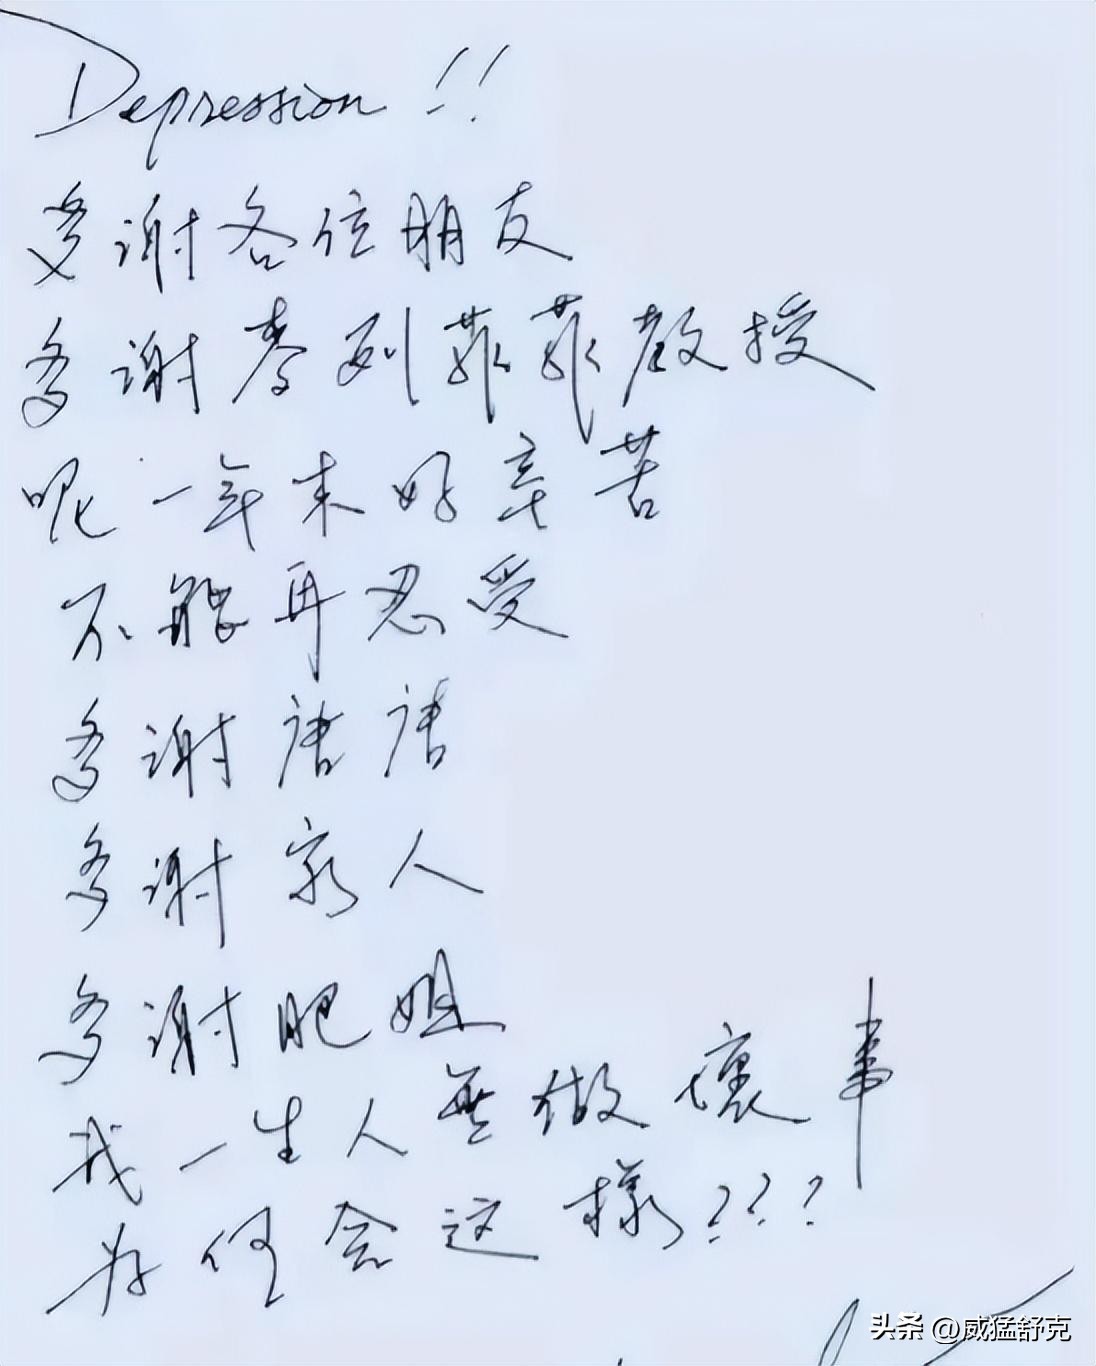 Depression!!
多谢各位朋友
多谢麥列菲菲教授
呢一年来好辛苦
不能再忍受
多谢唐唐
多谢家人
多谢肥姐
我一生人無做壞事
为何会这樣???
头条 @威猛舒克